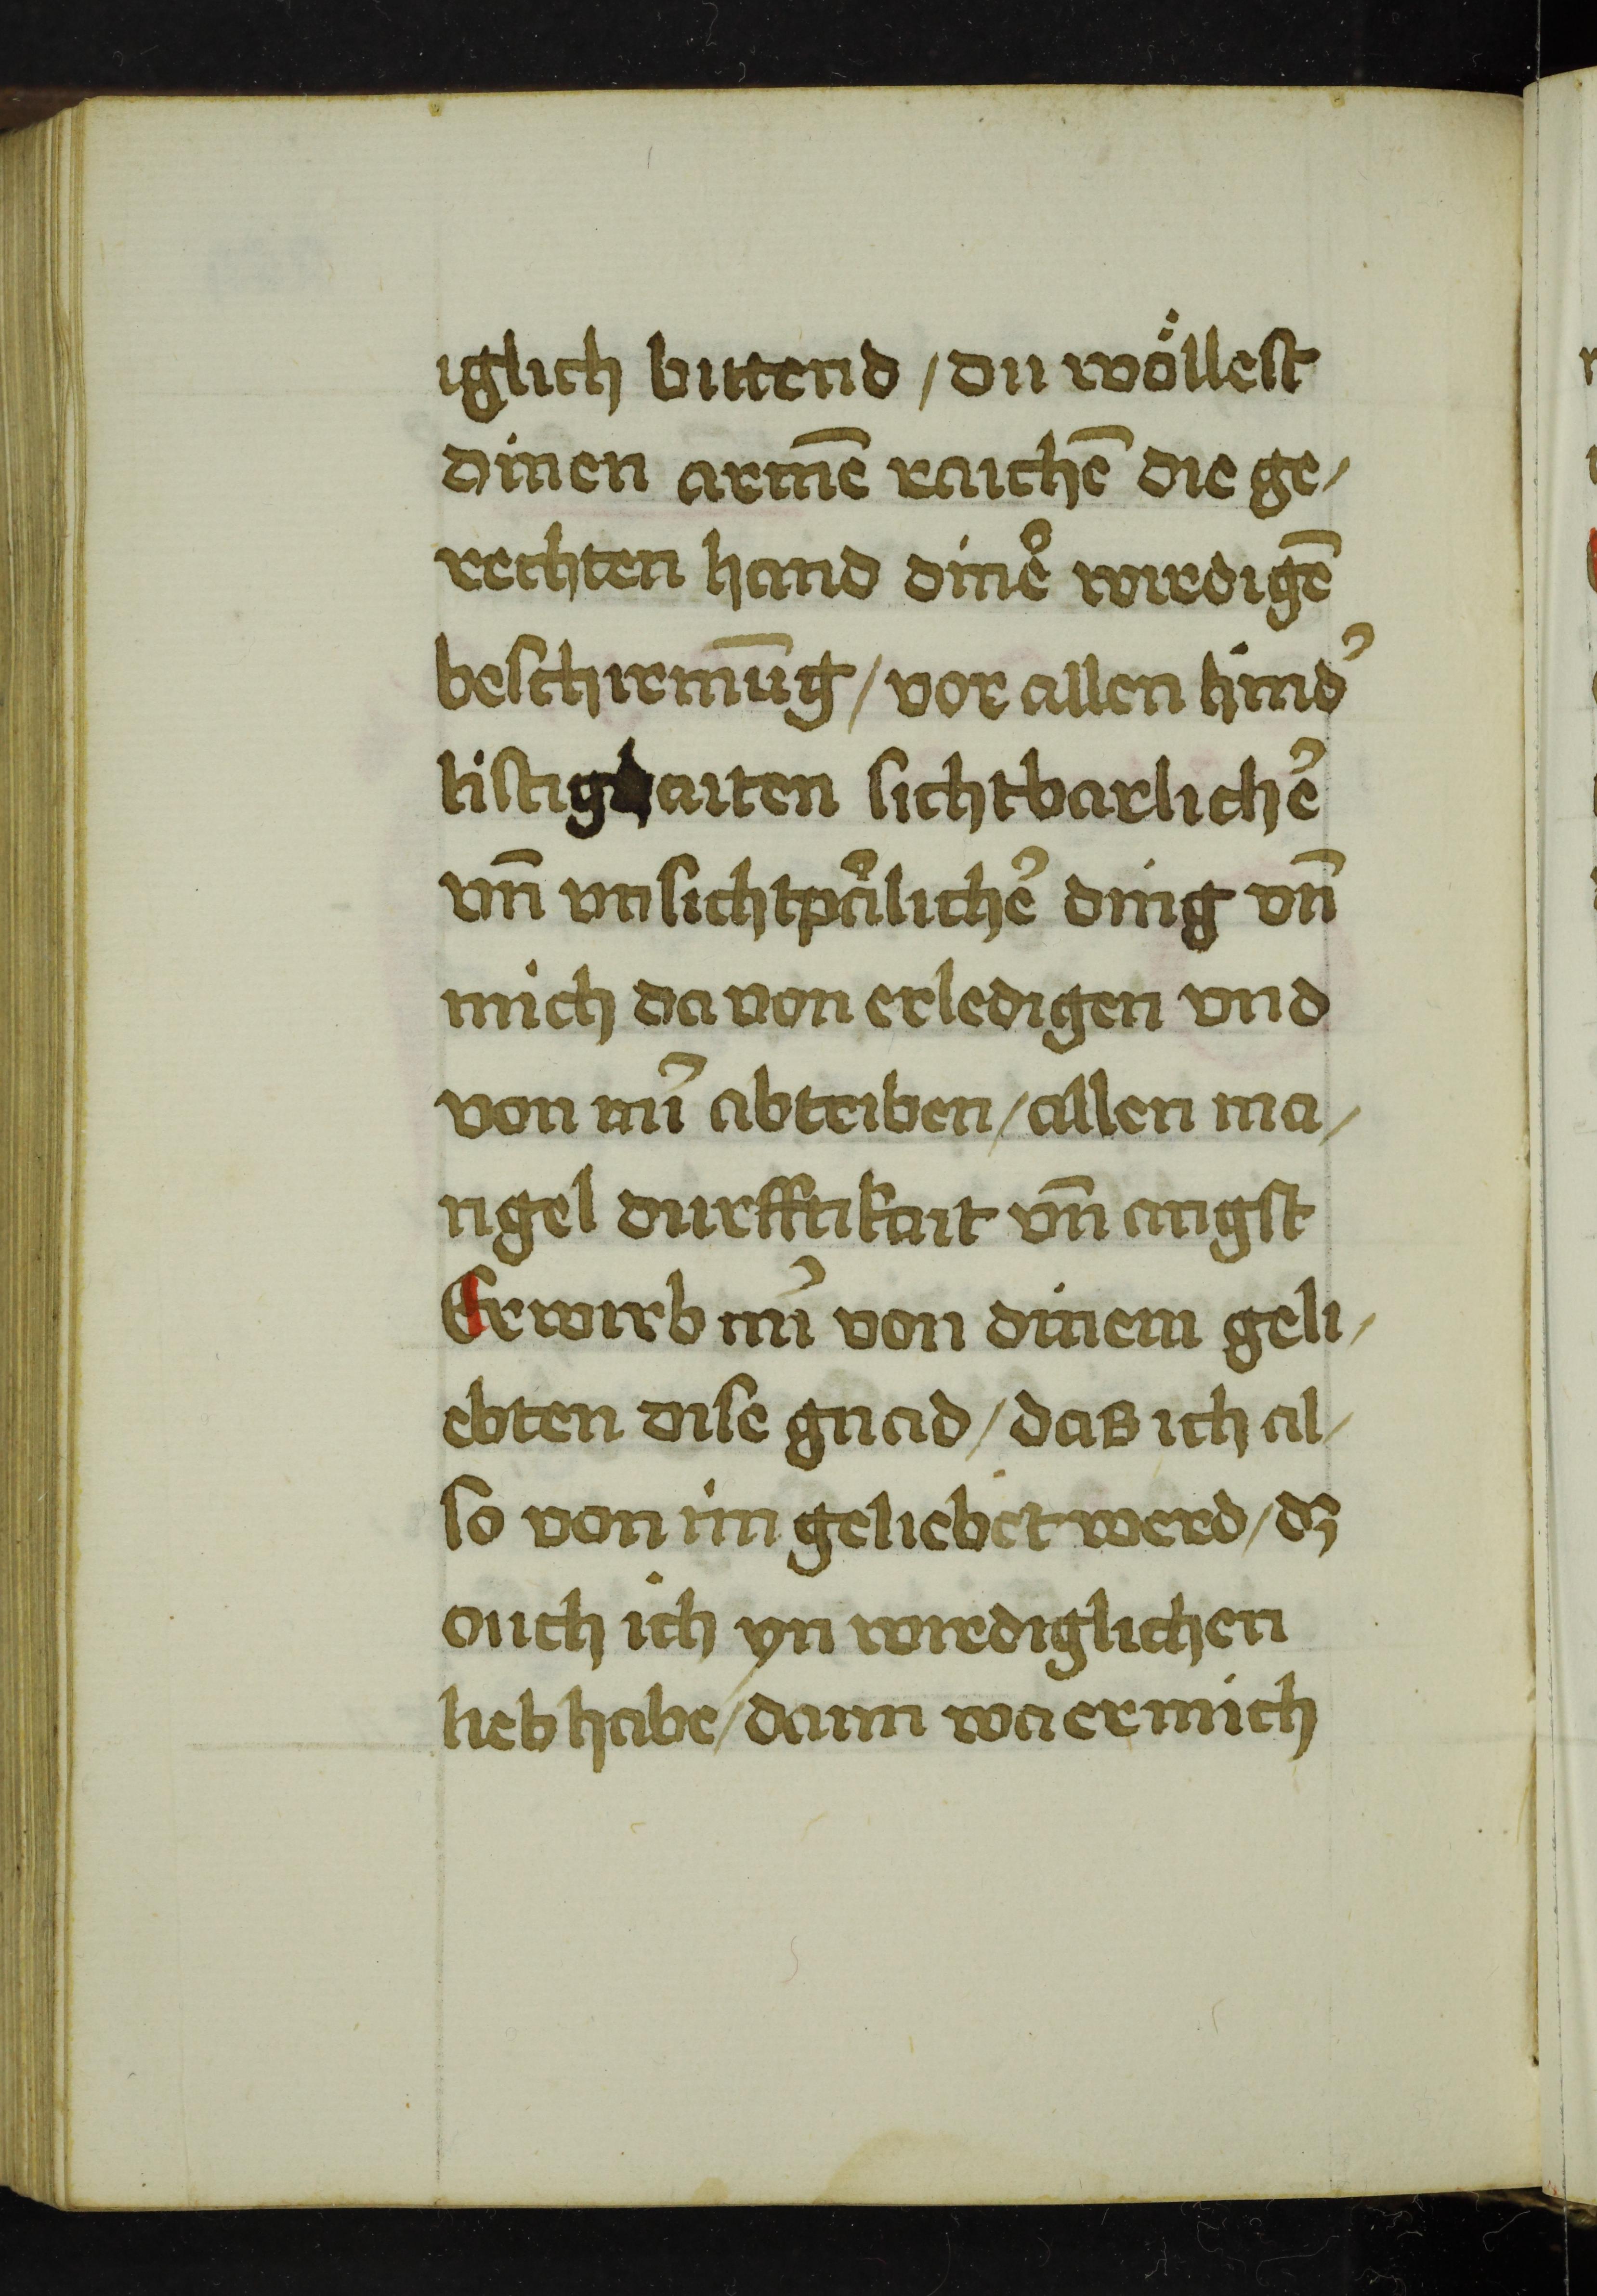 iglich bittend / du wöllest
dinen arme͞ raiche͞ die ge/
rechten hand dine᷑ wirdige͞
beschirmu͞g / vor allen hind᷑
listigkaiten sichtbarliche᷑
vn͞ vnsichtpa᷑liche᷑ ding vn͞
mich da von erledigen vnd
von mi᷑ abtriben / allen ma/
ngel durfftikait vn͞ angst
Erwirb mi᷑ von dinem geli/
ebten dise gnad / das ich al/
so von im geliebet werd / dʒ
ouch ich yn wirdiglichen
lieb habe / dann wa er mich